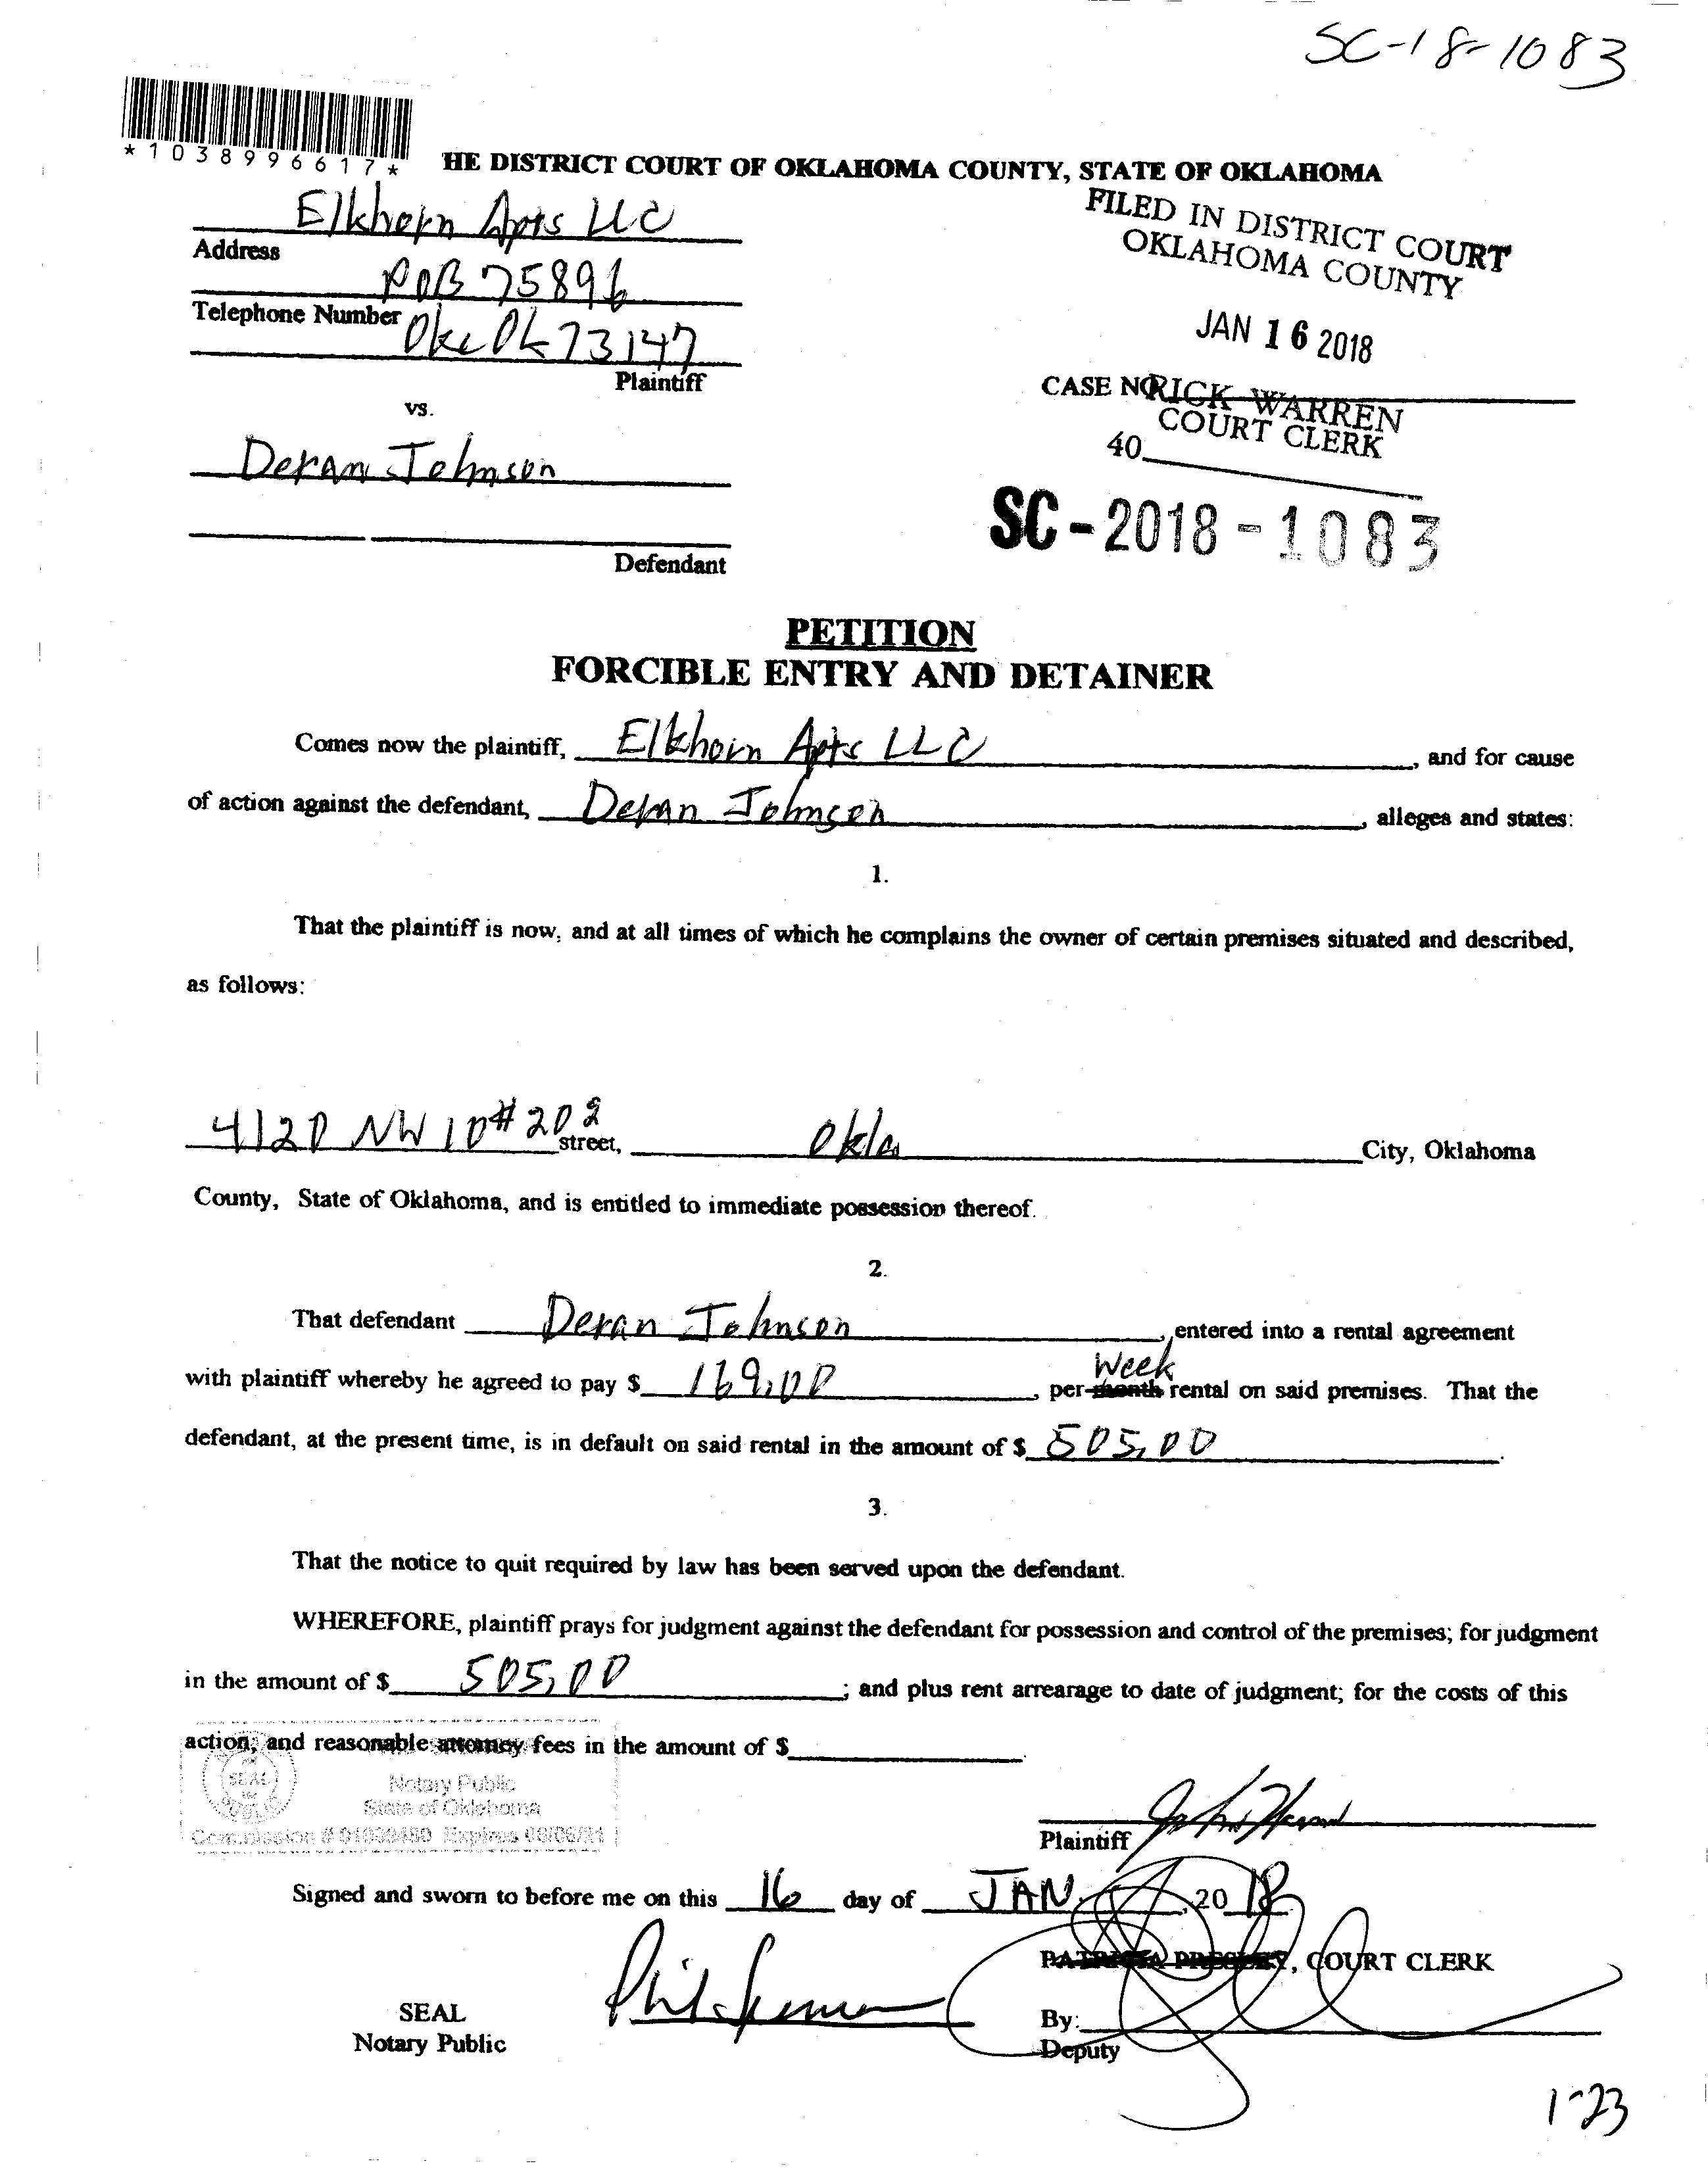 SC-18-1083
*1038996617*
HE DISTRICT COURT OF OKLAHOMA COUNTY, STATE OF OKLAHOMA
Elkhorn Apts LLC
FILED IN DISTRICT COURT
OKLAHOMA COUNTY
Address
POB 75896
Telephone Number
OKC OK 73147
JAN 16 2018
Plaintiff
CASE NO.
RICK WARREN
COURT CLERK
vs.
40
Deran Johnson
SC-2018-1083
Defendant
PETITION
FORCIBLE ENTRY AND DETAINER
Comes now the plaintiff, Elkhorn Apts LLC, and for cause
of action against the defendant, Deran Johnson, alleges and states:
1.
That the plaintiff is now, and at all times of which he complains the owner of certain premises situated and described,
as follows:
4120 NW 10 #202 street, Okla City, Oklahoma
County, State of Oklahoma, and is entitled to immediate possession thereof.
2.
That defendant Deran Johnson, entered into a rental agreement
with plaintiff whereby he agreed to pay $ 169.00, per month Week rental on said premises. That the
defendant, at the present time, is in default on said rental in the amount of $ 505.00.
3.
That the notice to quit required by law has been served upon the defendant.
WHEREFORE, plaintiff prays for judgment against the defendant for possession and control of the premises; for judgment
in the amount of $ 505.00; and plus rent arrearage to date of judgment; for the costs of this
action; and reasonable attorney fees in the amount of $
SEAL
Notary Public
State of Oklahoma
Commission # Expires
Plaintiff
Signed and sworn to before me on this 16 day of JAN, 20 18
PATRICIA PRESLEY, COURT CLERK
SEAL
By:
Notary Public
Deputy
1-23